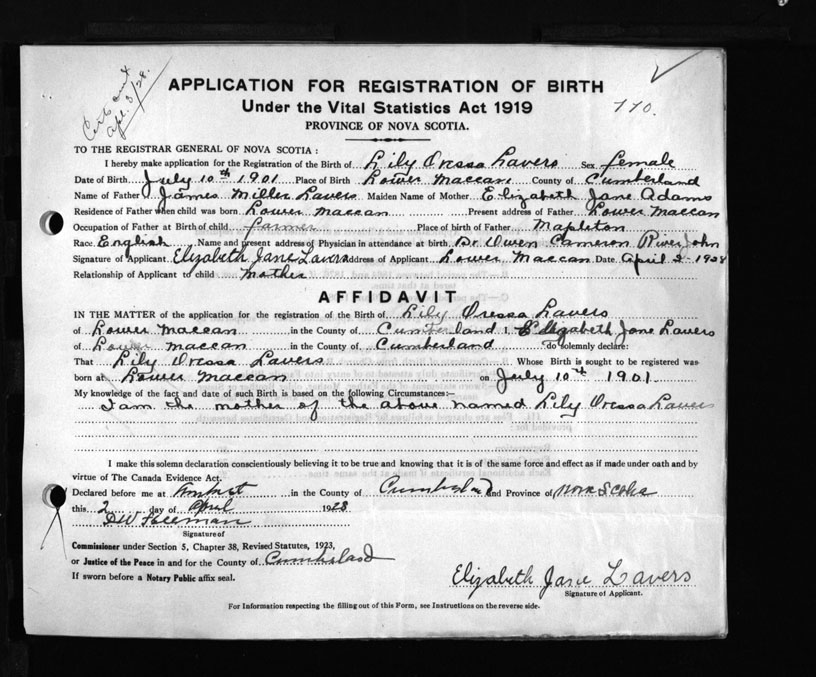 Cert sent
Apl. 3/28.
APPLICATION FOR REGISTRATION OF BIRTH
Under the Vital Statistics Act 1919
110.
PROVINCE OF NOVA SCOTIA.
TO THE REGISTRAR GENERAL OF NOVA SCOTIA :
I hereby make application for the Registration of the Birth of Lily Oressa Lavers Sex female
Date of Birth July 10th 1901 Place of Birth Lower Maccan County of Cumberland
Name of Father James Miller Lavers Maiden Name of Mother Elizabeth Jane Adams
Residence of Father when child was born Lower Maccan Present address of Father Lower Maccan
Occupation of Father at Birth of child farmer Place of birth of Father Mapleton
Race English Name and present address of Physician in attendance at birth Dr Owen Cameron River John
Signature of Applicant Elizabeth Jane Lavers address of Applicant Lower Maccan Date April 2-1928
Relationship of Applicant to child mother
AFFIDAVIT
IN THE MATTER of the application for the registration of the Birth of Lily Oressa Lavers
of Lower Maccan in the County of Cumberland I, Elizabeth Jane Lavers
of Lower Maccan in the County of Cumberland do solemnly declare:
That Lily Oressa Lavers Whose Birth is sought to be registered was
born at Lower Maccan on July 10th 1901
My knowledge of the fact and date of such Birth is based on the following Circumstances:—
I am the mother of the above named Lily Oressa Lavers
I make this solemn declaration conscientiously believing it to be true and knowing that it is of the same force and effect as if made under oath and by
virtue of The Canada Evidence Act.
Declared before me at Amherst in the County of Cumberland and Province of Nova Scotia
this 2 day of April 1928
Signature of
Commissioner under Section 5, Chapter 38, Revised Statutes, 1923,
or Justice of the Peace in and for the County of Cumberland
If sworn before a Notary Public affix seal.
Elizabeth Jane Lavers
Signature of Applicant.
For Information respecting the filling out of this Form, see Instructions on the reverse side.